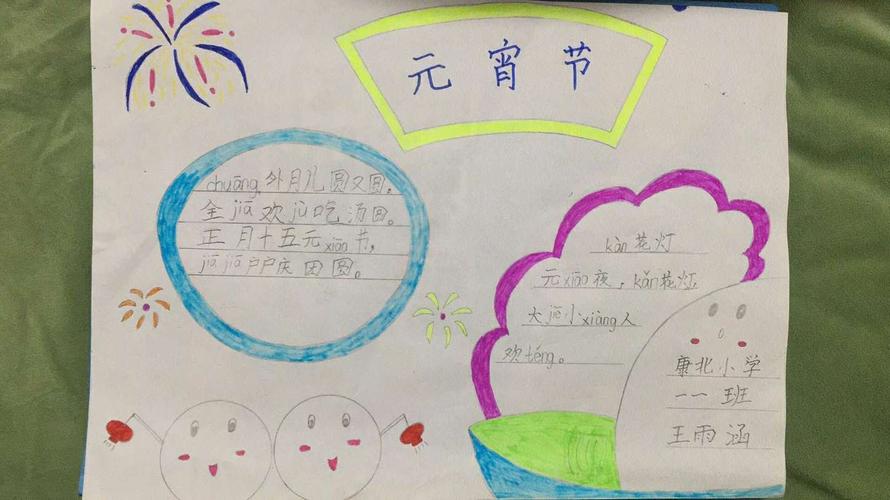 元宵节
chuāng外月儿圆又圆。
全jiā欢jù吃汤回。
正月十五元xiāo节,
jiā jiā户户庆团圆。
kàn花灯
元xiāo夜，kǎn花灯
大jiē小xiàng人
欢téng。
康北小学
一一班
王雨涵